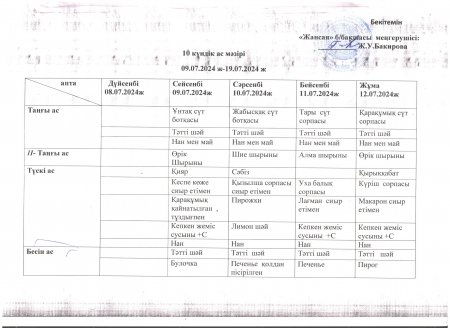 Бекітемін
«Жансая» б/бақшасы меңгерушісі:
Ж.У.Бакирова
10 күндік ас мәзірі
09.07.2024 ж-19.07.2024 ж
апта Дүйсенбі Сейсенбі Сәрсенбі Бейсенбі Жұма
08.07.2024ж 09.07.2024ж 10.07.2024ж 11.07.2024ж 12.07.2024ж
Таңғы ас Ұнтақ сүт Жабысқақ сүт Тары сүт Қарақұмық сүт
ботқасы ботқасы сорпасы сорпасы
Тәтті шәй Тәтті шәй Тәтті шәй Тәтті шәй
Нан мен май Нан мен май Нан мен май Нан мен май
II- Таңғы ас Өрік Шие шырыны Алма шырыны Өрік шырыны
Шырыны
Түскі ас Қияр Сәбіз Қырыққабат
Кеспе көже Қызылша сорпасы Уха балық Күріш сорпасы
сиыр етімен сиыр етімен сорпасы
Қарақұмық Пирожки Лағман сиыр Макарон сиыр
қайнатылған , етімен етімен
тұздықпен
Кепкен жеміс Лимон шәй Кепкен жеміс Кепкен жеміс
сусыны +С сусыны +С сусыны +С
Нан Нан Нан Нан
Бесін ас Тәтті шәй Тәтті шәй Тәтті шәй Тәтті шәй
Булочка Печенье қолдан Печенье Пирог
пісірілген